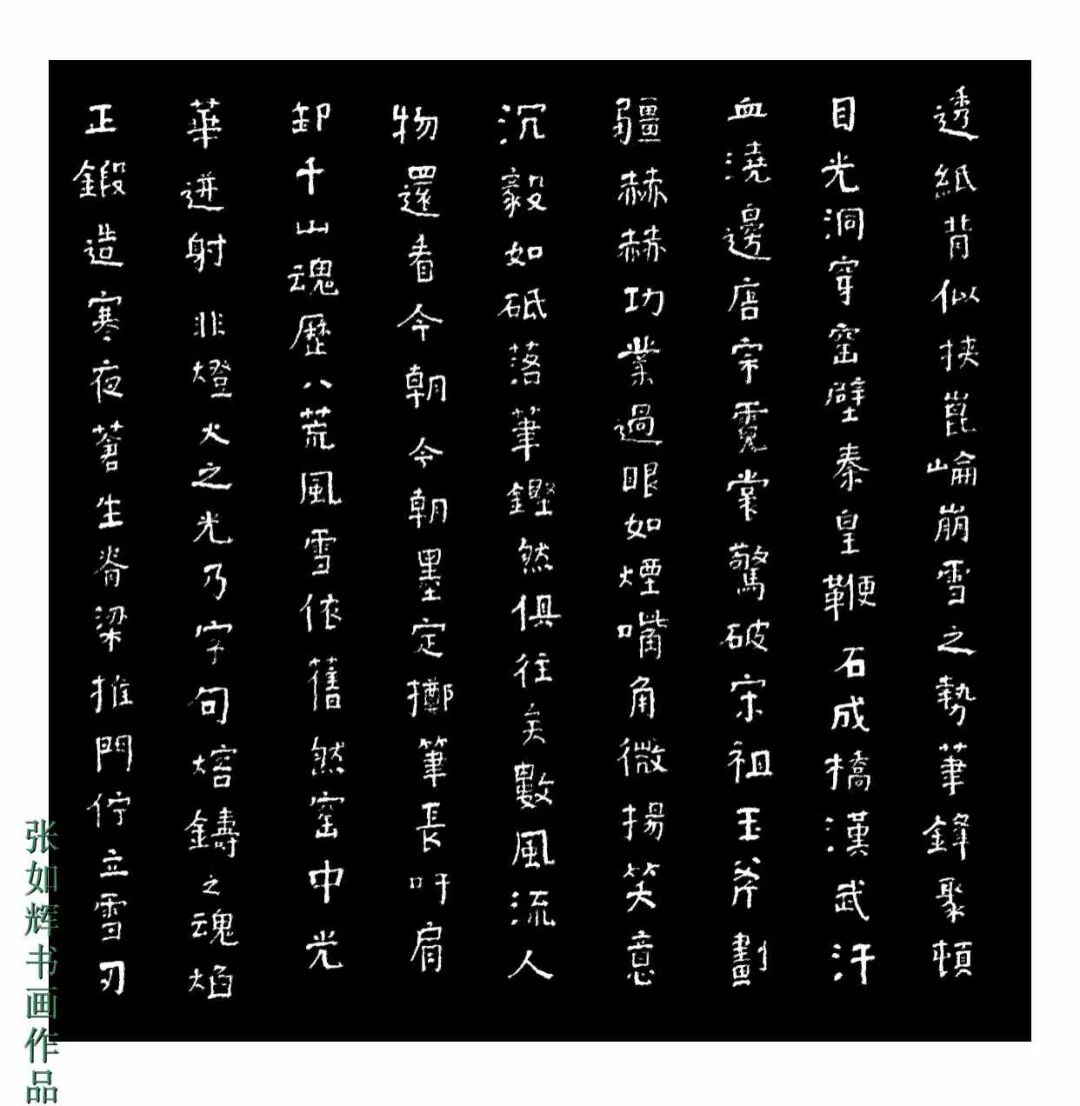 透紙背似挾崑崘崩雪之勢筆鋒驟頓
目光洞穿窑壁秦皇鞭石成橋漢武汗
血澆邊唐宗霓裳驚破宋祖玉斧劃
疆赫赫功業過眼如煙嘴角微揚笑意
沉毅如砥落筆鏗然俱往矣數風流人
物還看今朝今朝墨定擲筆長吁肩
卸千山魂歷八荒風雪依舊然窑中光
華迸射非燈火之光乃字句熔鑄之魂焰
正鍛造寒夜蒼生脊梁推門佇立雪刃
张如辉书画作品